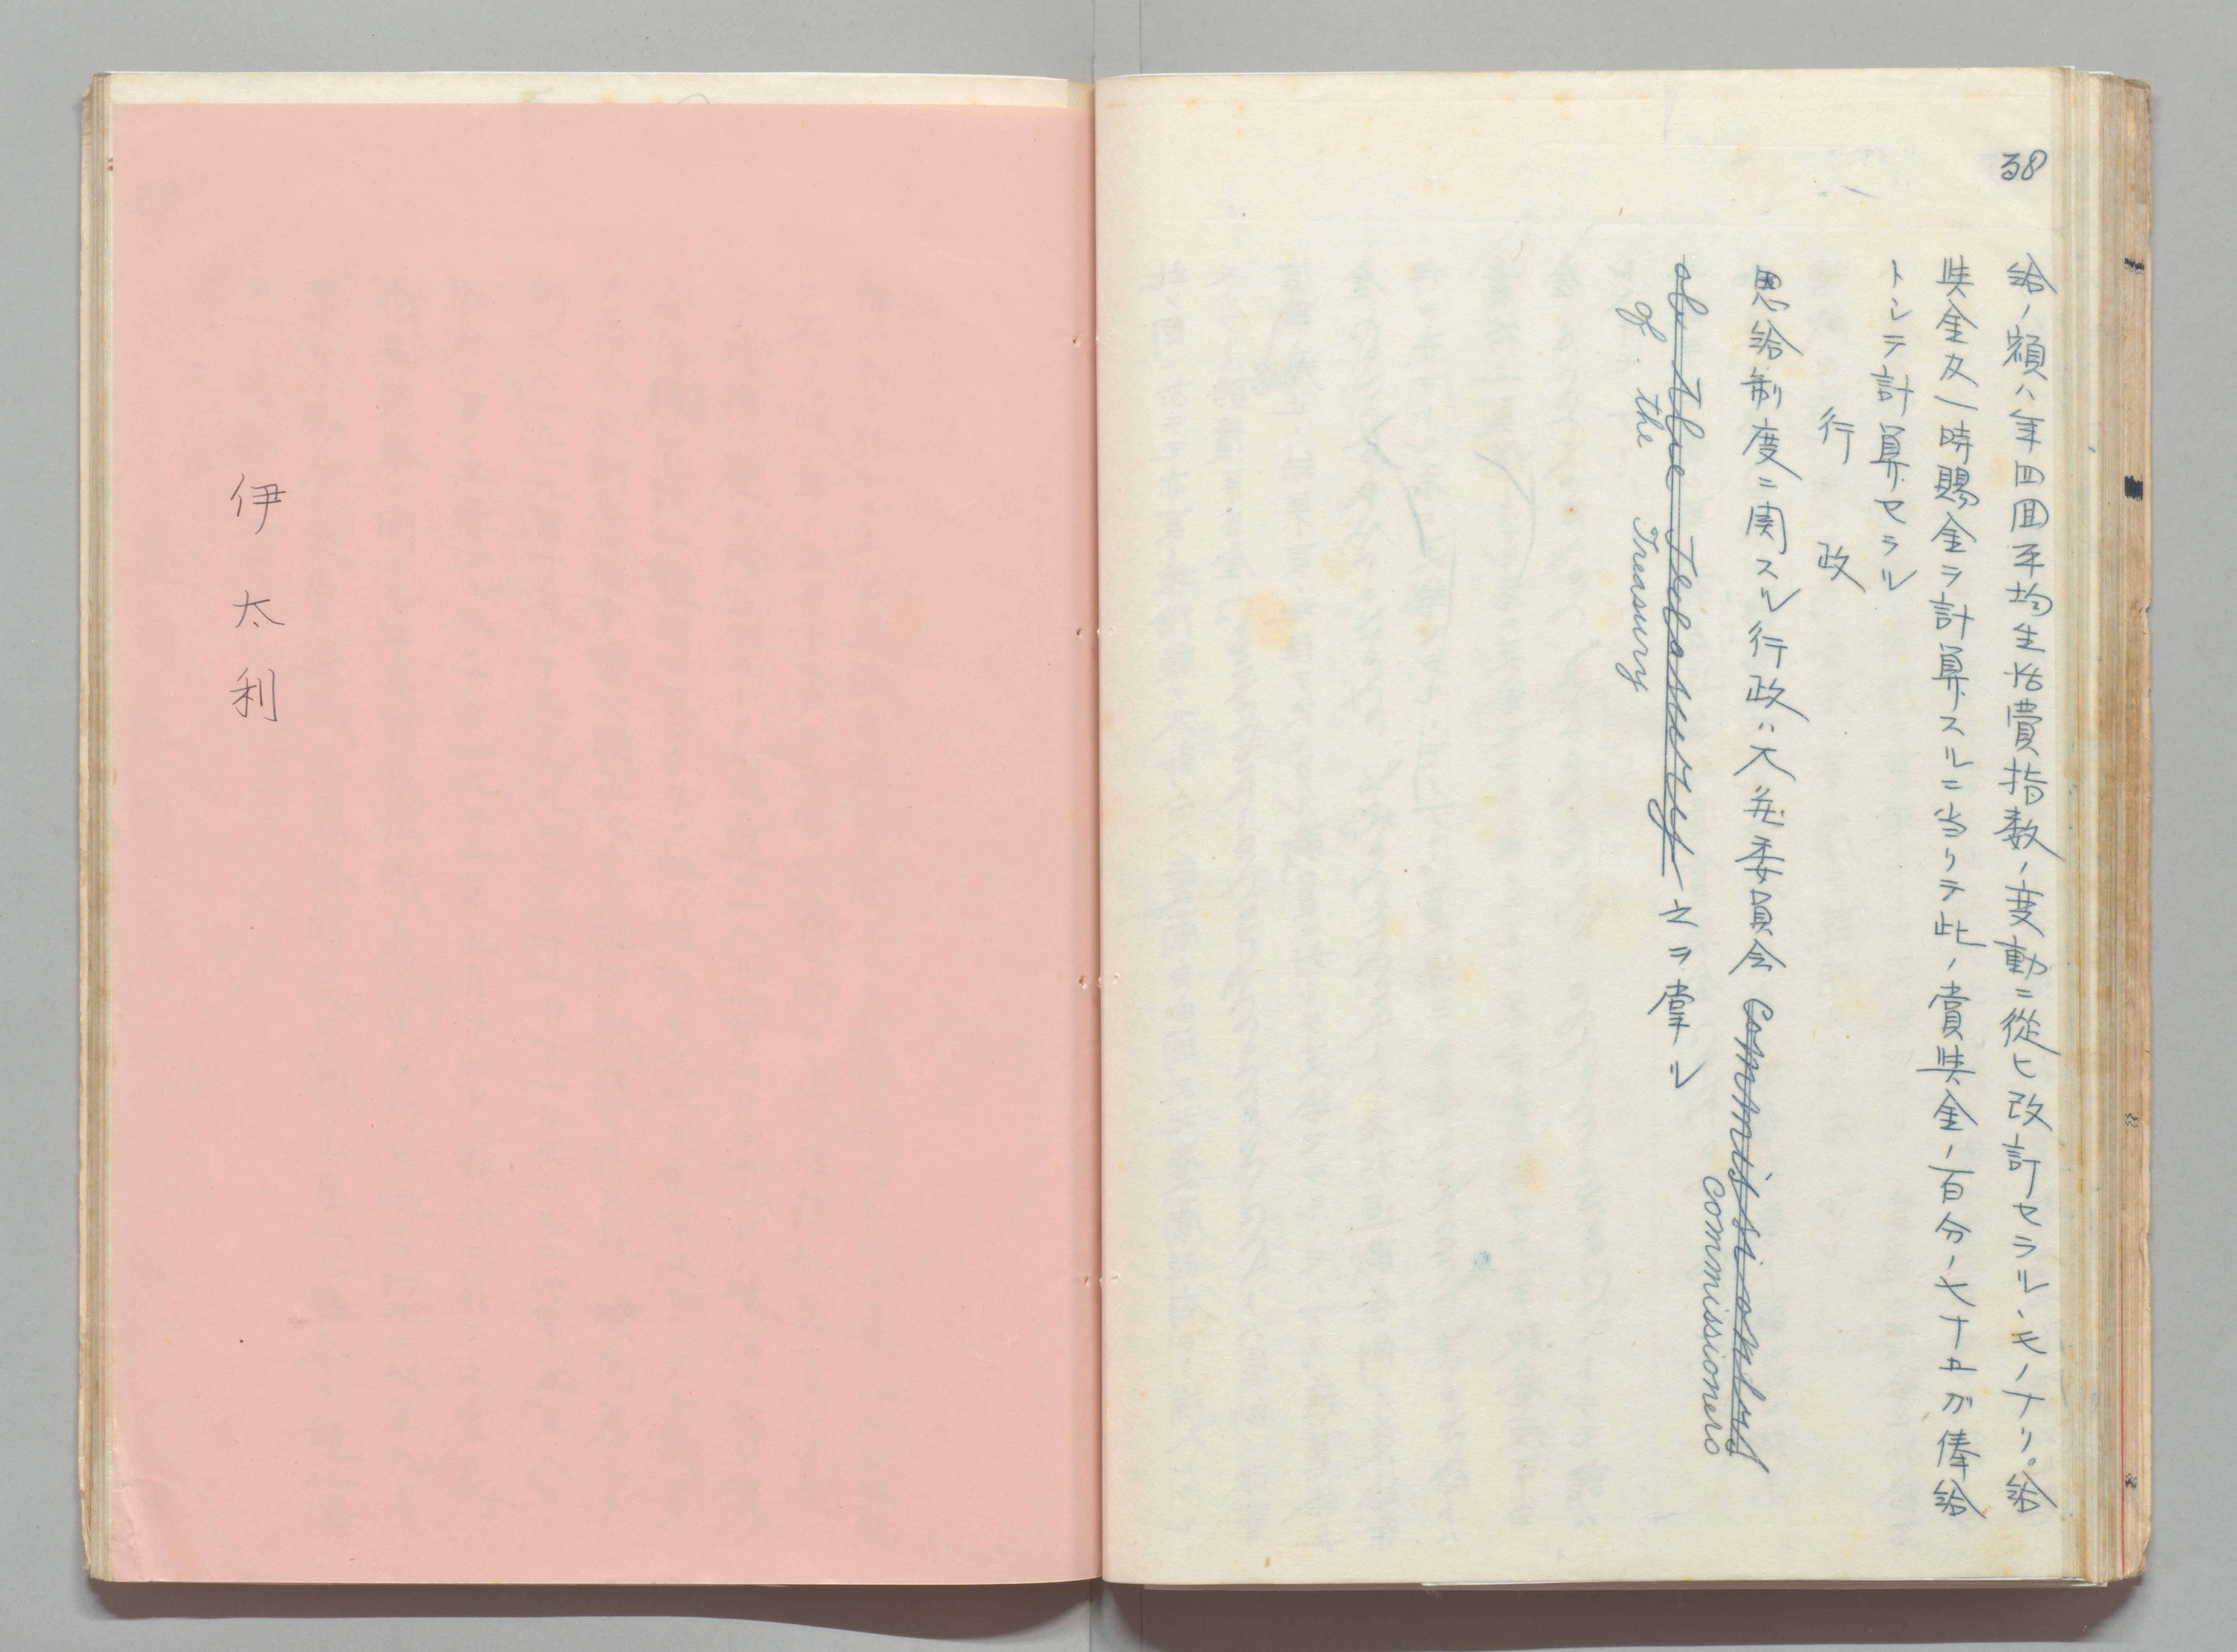 38
給ノ額ハ年四囬平均生活費指数ノ変動ニ從ヒ改訂セラルヽモノナリ。給
奬金及一時賜金ヲ計算スルニ当リテ此ノ賞奬金ノ百分ノ七十五ガ俸給
トシテ計算セラル
行政
恩給制度ニ関スル行政ハ大蔵委員会 Commissioners
commissioners
of the Treasury 之ヲ掌ル
of the Treasury
伊太利